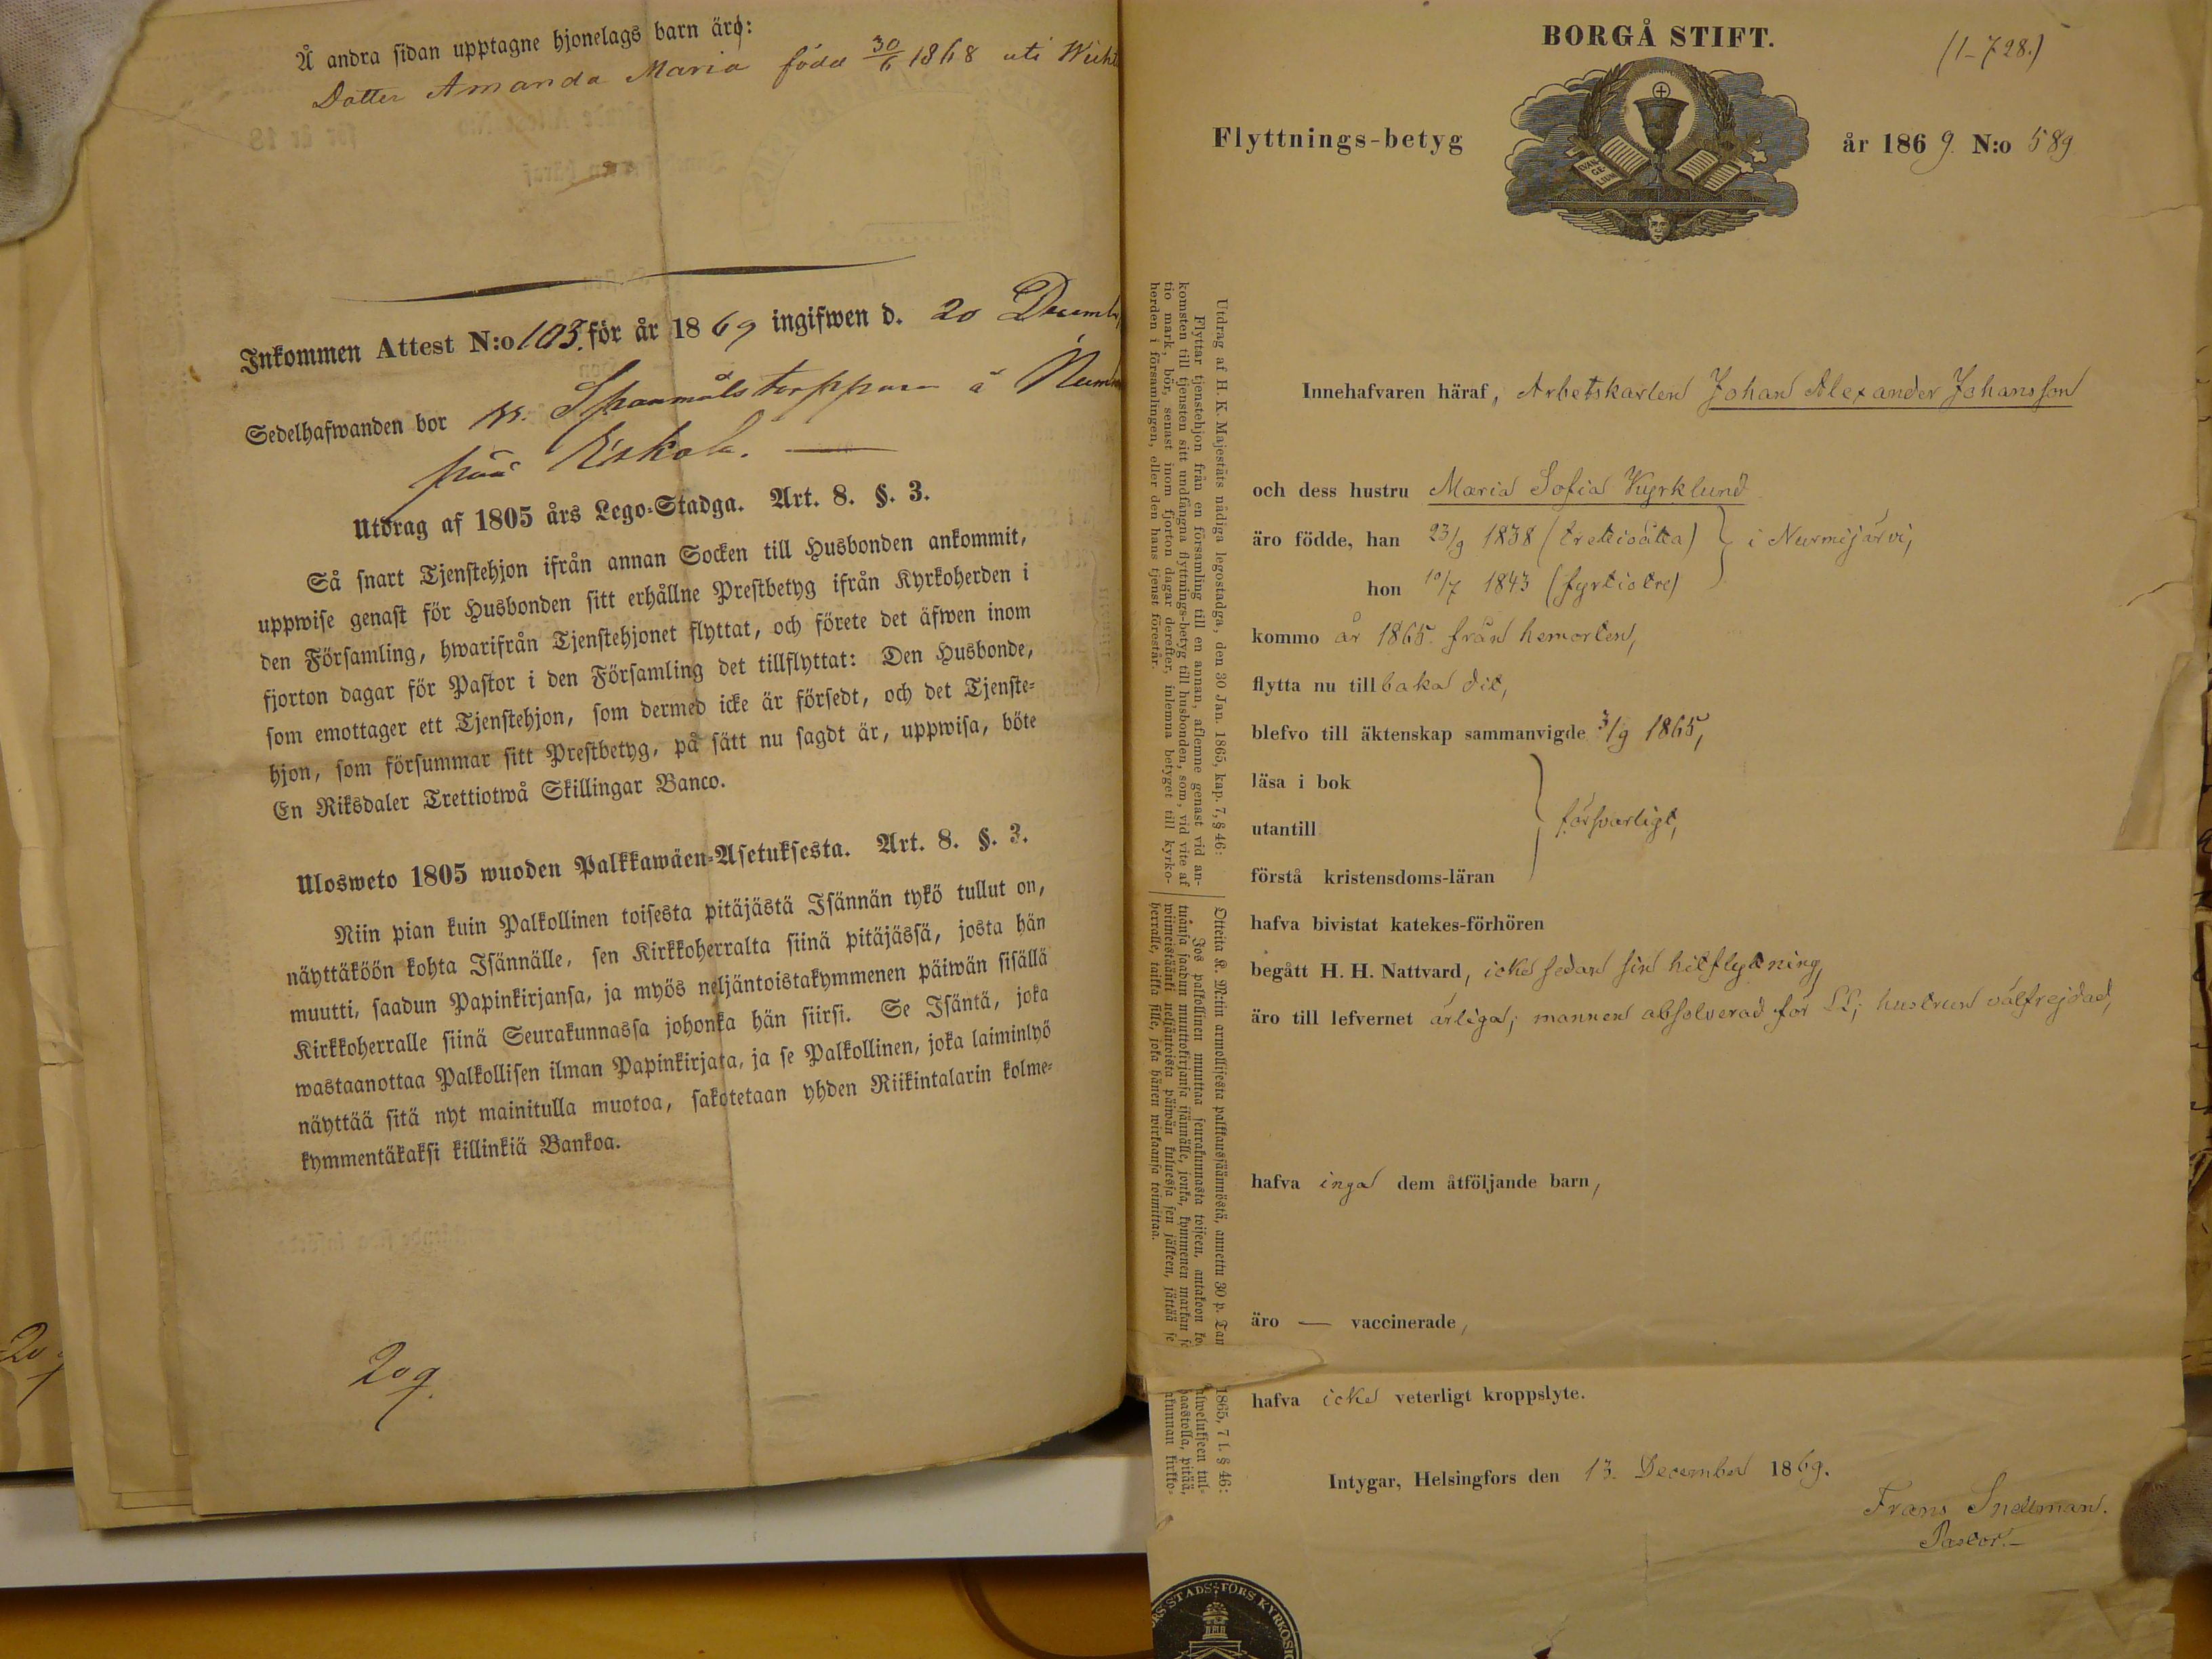 Å andra sidan upptagne hjonelags barn äro:
Dotter Amanda Maria född 30/6 1868 uti
Inkommen Attest N:o 103. för år 1869 ingifwen d. 20
Sedelhafwanden bor
Utdrag af 1805 års Lego-Stadga. Art. 8. §. 3.
Så snart Tjenstehjon ifrån annan Socken till Husbonden ankommit,
uppwise genast för Husbonden sitt erhållne Prestbetyg ifrån Kyrkoherden i
den Församling, hwarifrån Tjenstehjonet flyttat, och förete det äfwen inom
fjorton dagar för Pastor i den Församling det tillflyttat: Den Husbonde,
som emottager ett Tjenstehjon, som dermed icke är försedt, och det Tjenste-
hjon, som försummar sitt Prestbetyg, på sätt nu sagdt är, uppwisa, böte
En Riksdaler Trettiotwå Skillingar Banco.
Ulosweto 1805 wuoden Palkkawäen-Asetuksesta. Art. 8. §. 3.
Niin pian kuin Palkollinen toisesta pitäjästä Isännän tykö tullut on,
näyttäköön kohta Isännälle, sen Kirkkoherralta siinä pitäjässä, josta hän
muutti, saadun Papinkirjansa, ja myös neljäntoistakymmenen päiwän sisällä
Kirkkoherralle siinä Seurakunnassa johonka hän siirsi. Se Isäntä, joka
wastaanottaa Palkollisen ilman Papinkirjata, ja se Palkollinen, joka laiminlyö
näyttää sitä nyt mainitulla muotoa, sakotetaan yhden Riikintalarin kolme-
kymmentäkaksi killinkiä Bankoa.
209.
BORGÅ STIFT.
(1-728.)
Flyttnings-betyg
EVAN-
GE-
LIUM
år 1869. N:o 589
Innehafvaren häraf, Arbetskarlen Johan Alexander Johansson
och dess hustru Maria Sofia Kyrklund
äro födde, han 23/9 1838 (trettioåtta) i Nurmijärvi,
hon 10/7 1843 (fyrtiotre)
kommo år 1865. från hemorten,
flytta nu tillbaka dit,
blefvo till äktenskap sammanvigde 3/9 1865,
läsa i bok
utantill försvarligt,
förstå kristensdoms-läran
hafva bivistat katekes-förhören
begått H. H. Nattvard, icke sedan sin hitflyttning,
äro till lefvernet ärliga; mannen absolverad för LS; hustrun välfrejdad,
hafva inga dem åtföljande barn,
äro — vaccinerade,
hafva icke veterligt kroppslyte.
Intygar, Helsingfors den 13. December 1869.
Frans Snellman.
Pastor.
Utdrag af H. K. Majestäts nådiga legostadga, den 30 Jan. 1865, kap. 7, § 46:
Flyttar tjenstehjon från en församling till en annan, aflemne genast vid an-
komsten till tjensten sitt undfångna flyttnings-betyg till husbonden, som, vid vite af
tio mark, bör, senast inom fjorton dagar derefter, inlemna betyget till kyrko-
herden i församlingen, eller den hans tjenst förestår.
Otteita K. M:tin armollisesta palkkaussäännöstä, annettu 30 p. Tam
1865, 7 l. § 46:
Jos palkollinen muuttaa seurakunnasta toiseen, antakoon
palwelukseen tul-
tuansa saadun muuttokirjansa isännälle, jonka, kymmenen markan
haastolla, pitää,
wiimeistäänki neljäntoista päiwän kuluessa sen jälkeen, jättää se
herralle, taikka sille, joka hänen wirkaansa toimittaa.
STADS-FÖRS KYRKO